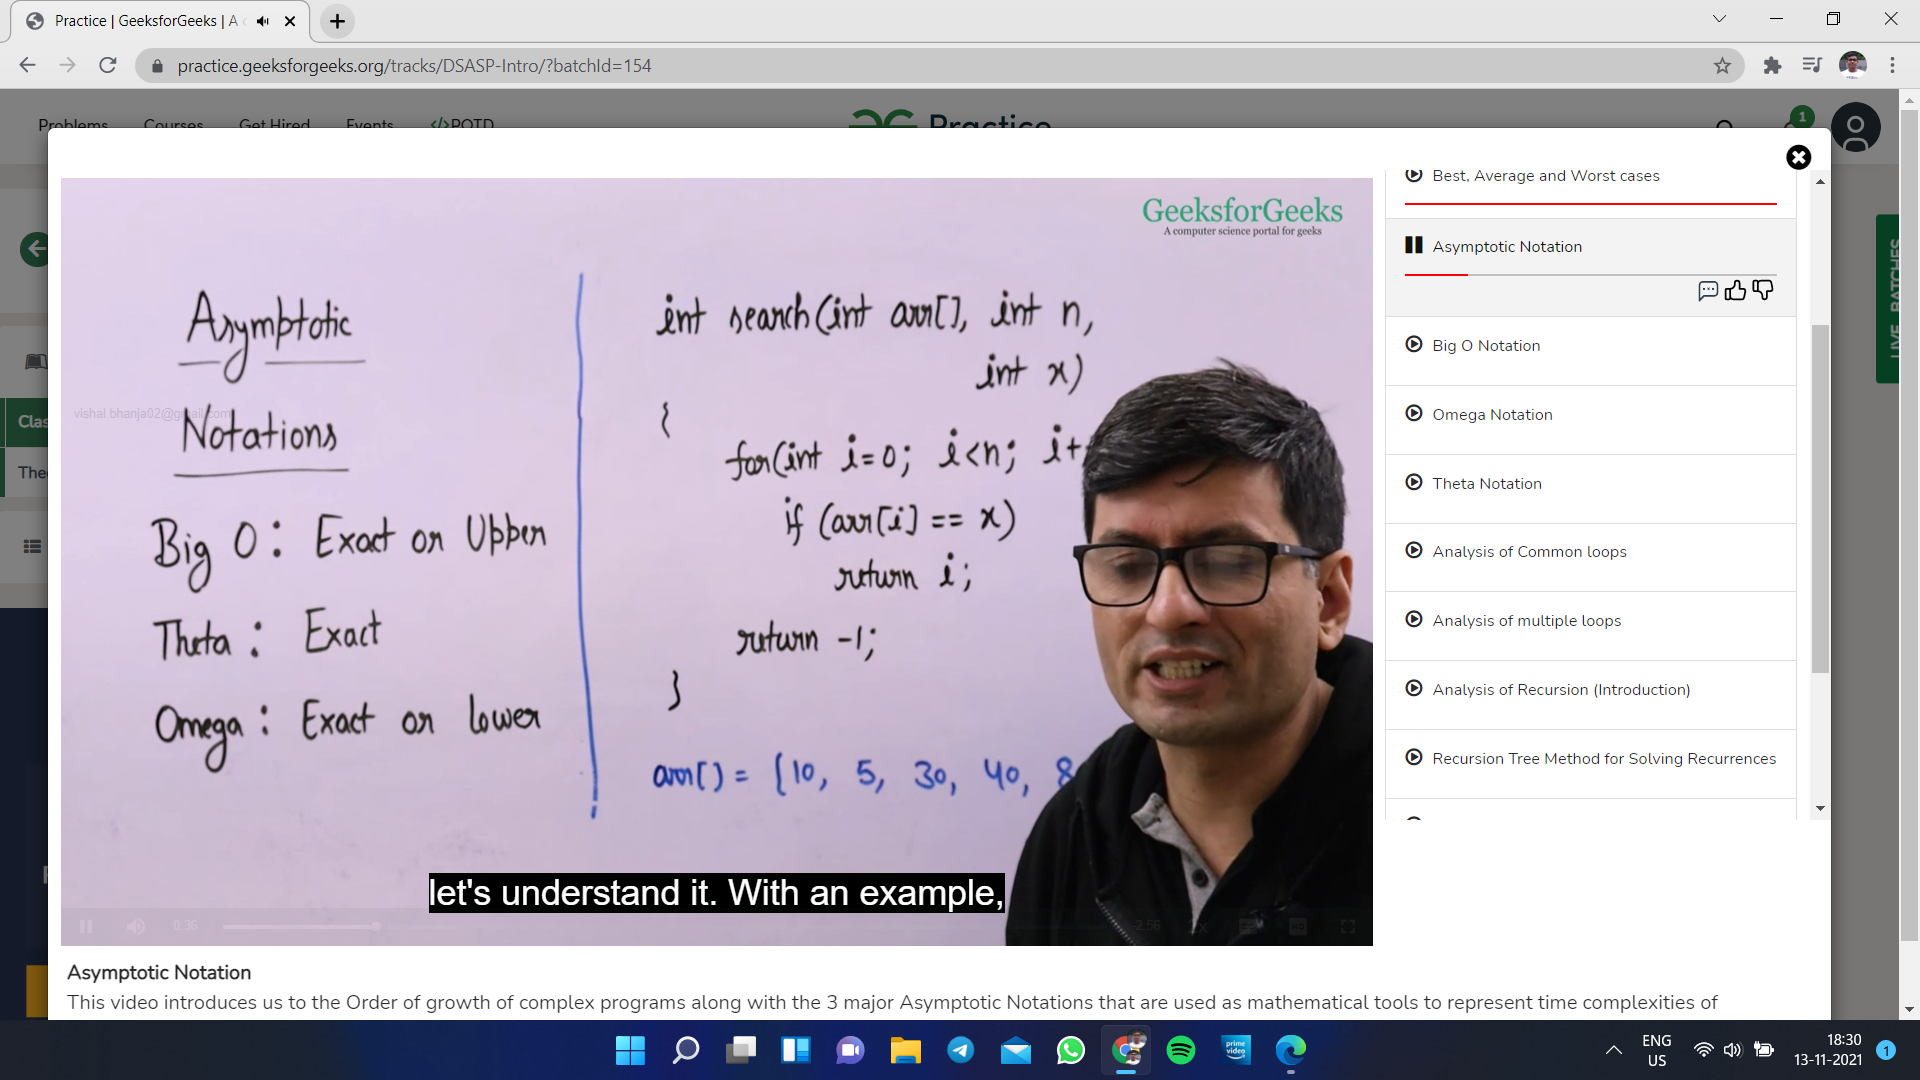 Practice | GeeksforGeeks | A
practice.geeksforgeeks.org/tracks/DSASP-Intro/?batchId=154
Problems Courses Get Hired Events </>POTD
Practice
1
LIVE BATCHES
Clas
The
GeeksforGeeks
A computer science portal for geeks
Asymptotic
Notations
vishal.bhanja02@gmail.com
Big O: Exact or Upper
Theta: Exact
Omega: Exact or lower
int search(int arr[], int n,
int x)
{
for(int i=0; i<n; i+
if (arr[i] == x)
return i;
return -1;
}
arr[] = {10, 5, 30, 40, 8
let's understand it. With an example,
0:36
-2:56
Best, Average and Worst cases
Asymptotic Notation
Big O Notation
Omega Notation
Theta Notation
Analysis of Common loops
Analysis of multiple loops
Analysis of Recursion (Introduction)
Recursion Tree Method for Solving Recurrences
Asymptotic Notation
This video introduces us to the Order of growth of complex programs along with the 3 major Asymptotic Notations that are used as mathematical tools to represent time complexities of
prime video
ENG
US
18:30
13-11-2021
1